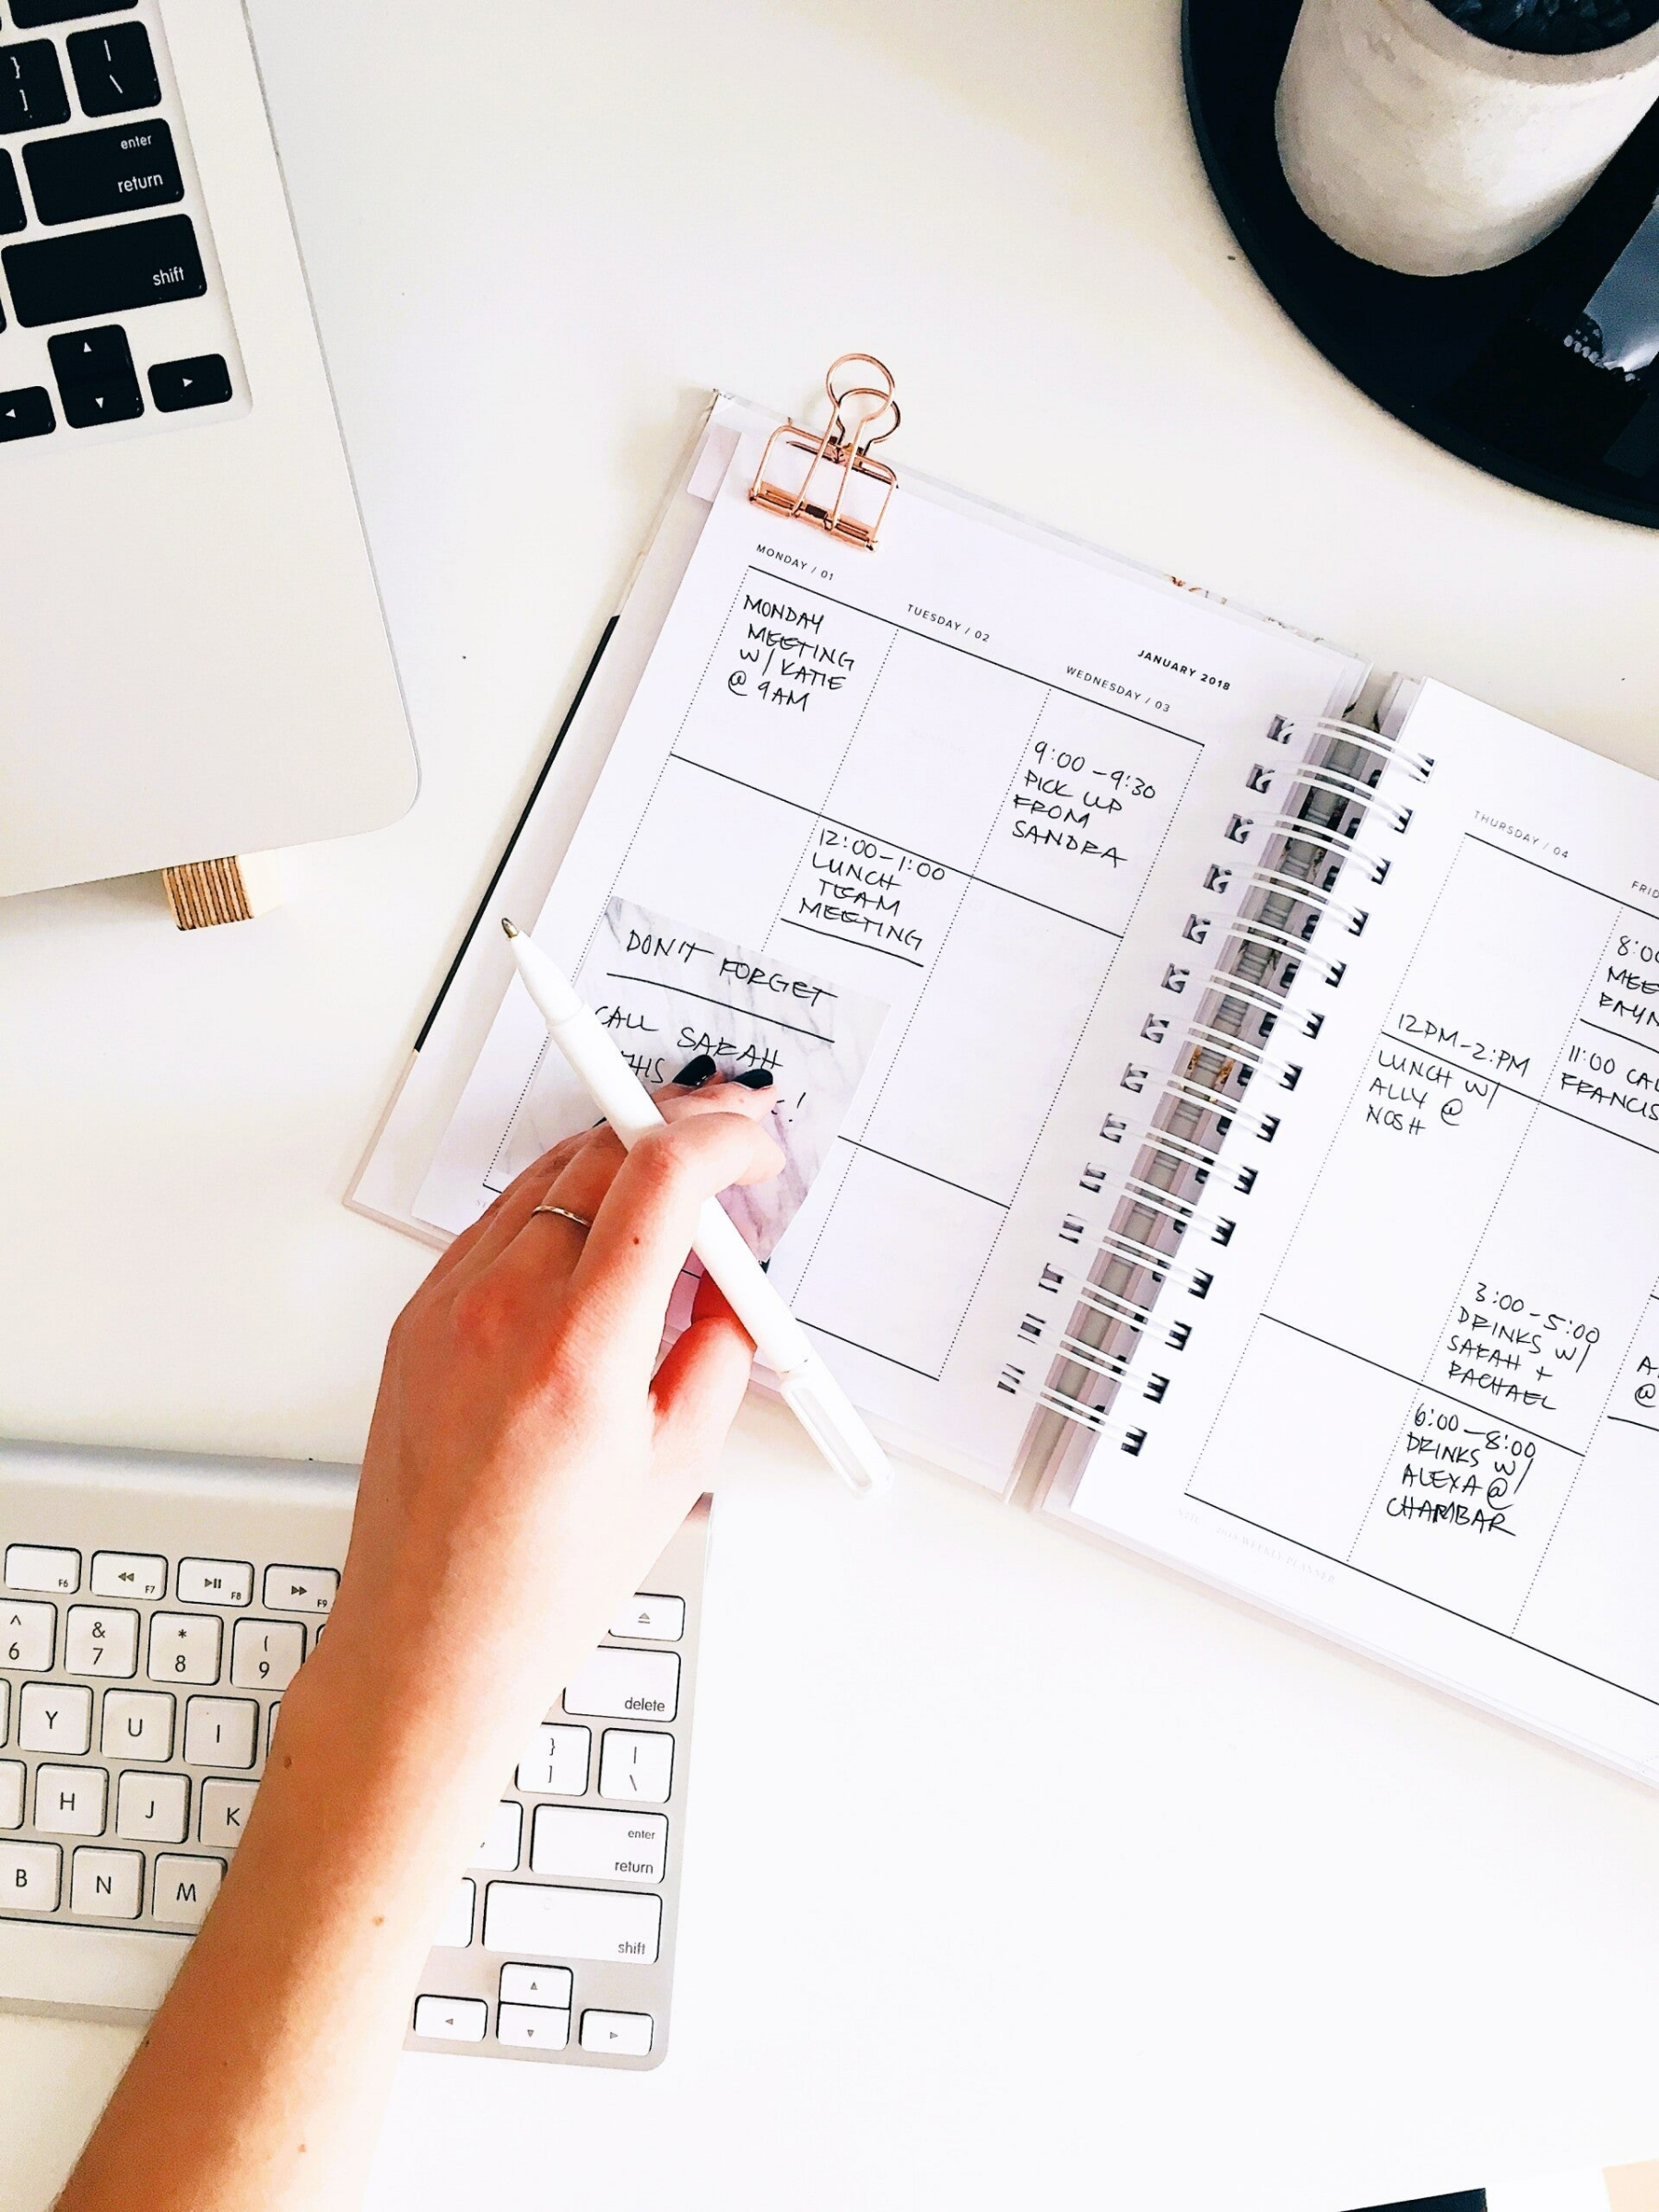 } ]
| \
enter
return
shift
MONDAY / 01
MONDAY
MEETING
W/ KATIE
@ 9AM
TUESDAY / 02
12:00-1:00
LUNCH
TEAM
MEETING
JANUARY 2018
WEDNESDAY / 03
9:00-9:30
PICK UP
FROM
SANDRA
DON'T FORGET
CALL SARAH
THIS
!
THURSDAY / 04
12PM-2:PM
LUNCH W/
ALLY @
NOSH
8:00
11:00
FRANCIS
3:00-5:00
DRINKS W/
SARAH +
RACHAEL
6:00-8:00
DRINKS W/
ALEXA @
CHAMBAR
@
2018 WEEKLY PLANNER
F6 F7 F8 F9
^ & * (
6 7 8 9
delete
Y U I
} ]
| \
H J K
enter
return
B N M
shift